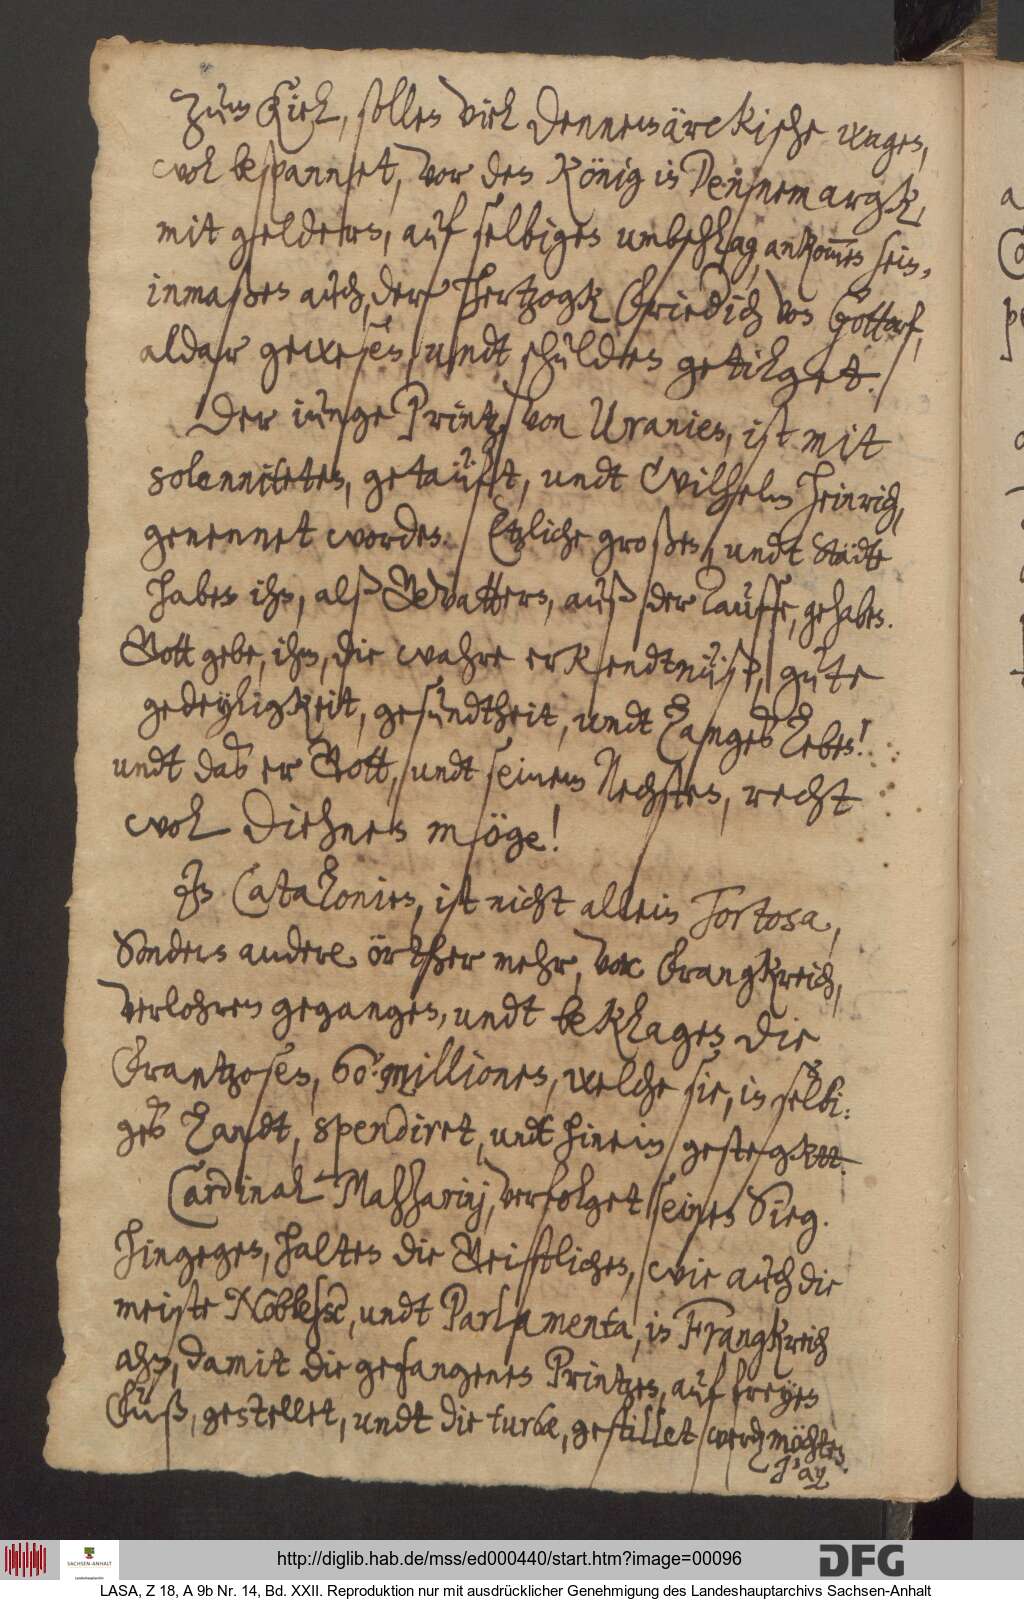 Zum Kiel, sollen viel Dennemärckische wagen,
wol bespannet, vor den König in Dennemargk,
mit geldern, auf selbigen umbschlag, ankom̅en sein,
inmaßen auch, der Hertzogk Friedich von Gottorf,
aldar gewesen, undt schulden getilget.
Der iunge Printz von Uranien, ist mit
solenniteten, getaüfft, undt Wilhelm Heinrich,
genennet worden. Etzliche großen, undt Städte
haben ihn, alß Gevattern, auß der Tauffe, gehaben.
Gott gebe, ihm, die wahre erkendtnüß, gute
gedeyligkeit, gesundtheit, undt Langes Leben!
undt das er Gott, undt seinem Nechsten, recht
wol diehnen möge!
In Catalonien, ist nicht allein Tortosa,
Sondern andere örther mehr, vor Frangkreich,
verlohren gegangen, undt beklagen die
Frantzosen, 60 millionen, welche sie, in selbi-
ges Landt, spendiret, undt hinein gestegktt.
Cardinal Mahzariny, verfolget seinen Sieg.
Hingegen, halten die Geistlichen, wie auch die
meiste Noblesse, undt Parlamenta, in Frangkreich
ahn, damit die gefangenen Printzen, auf freyen
Fuß, gestellet, undt die turbæ, gestillet werden möchten.
J'ay
http://diglib.hab.de/mss/ed000440/start.htm?image=00096
DFG
SACHSEN-ANHALT
LASA, Z 18, A 9b Nr. 14, Bd. XXII. Reproduktion nur mit ausdrücklicher Genehmigung des Landeshauptarchivs Sachsen-Anhalt